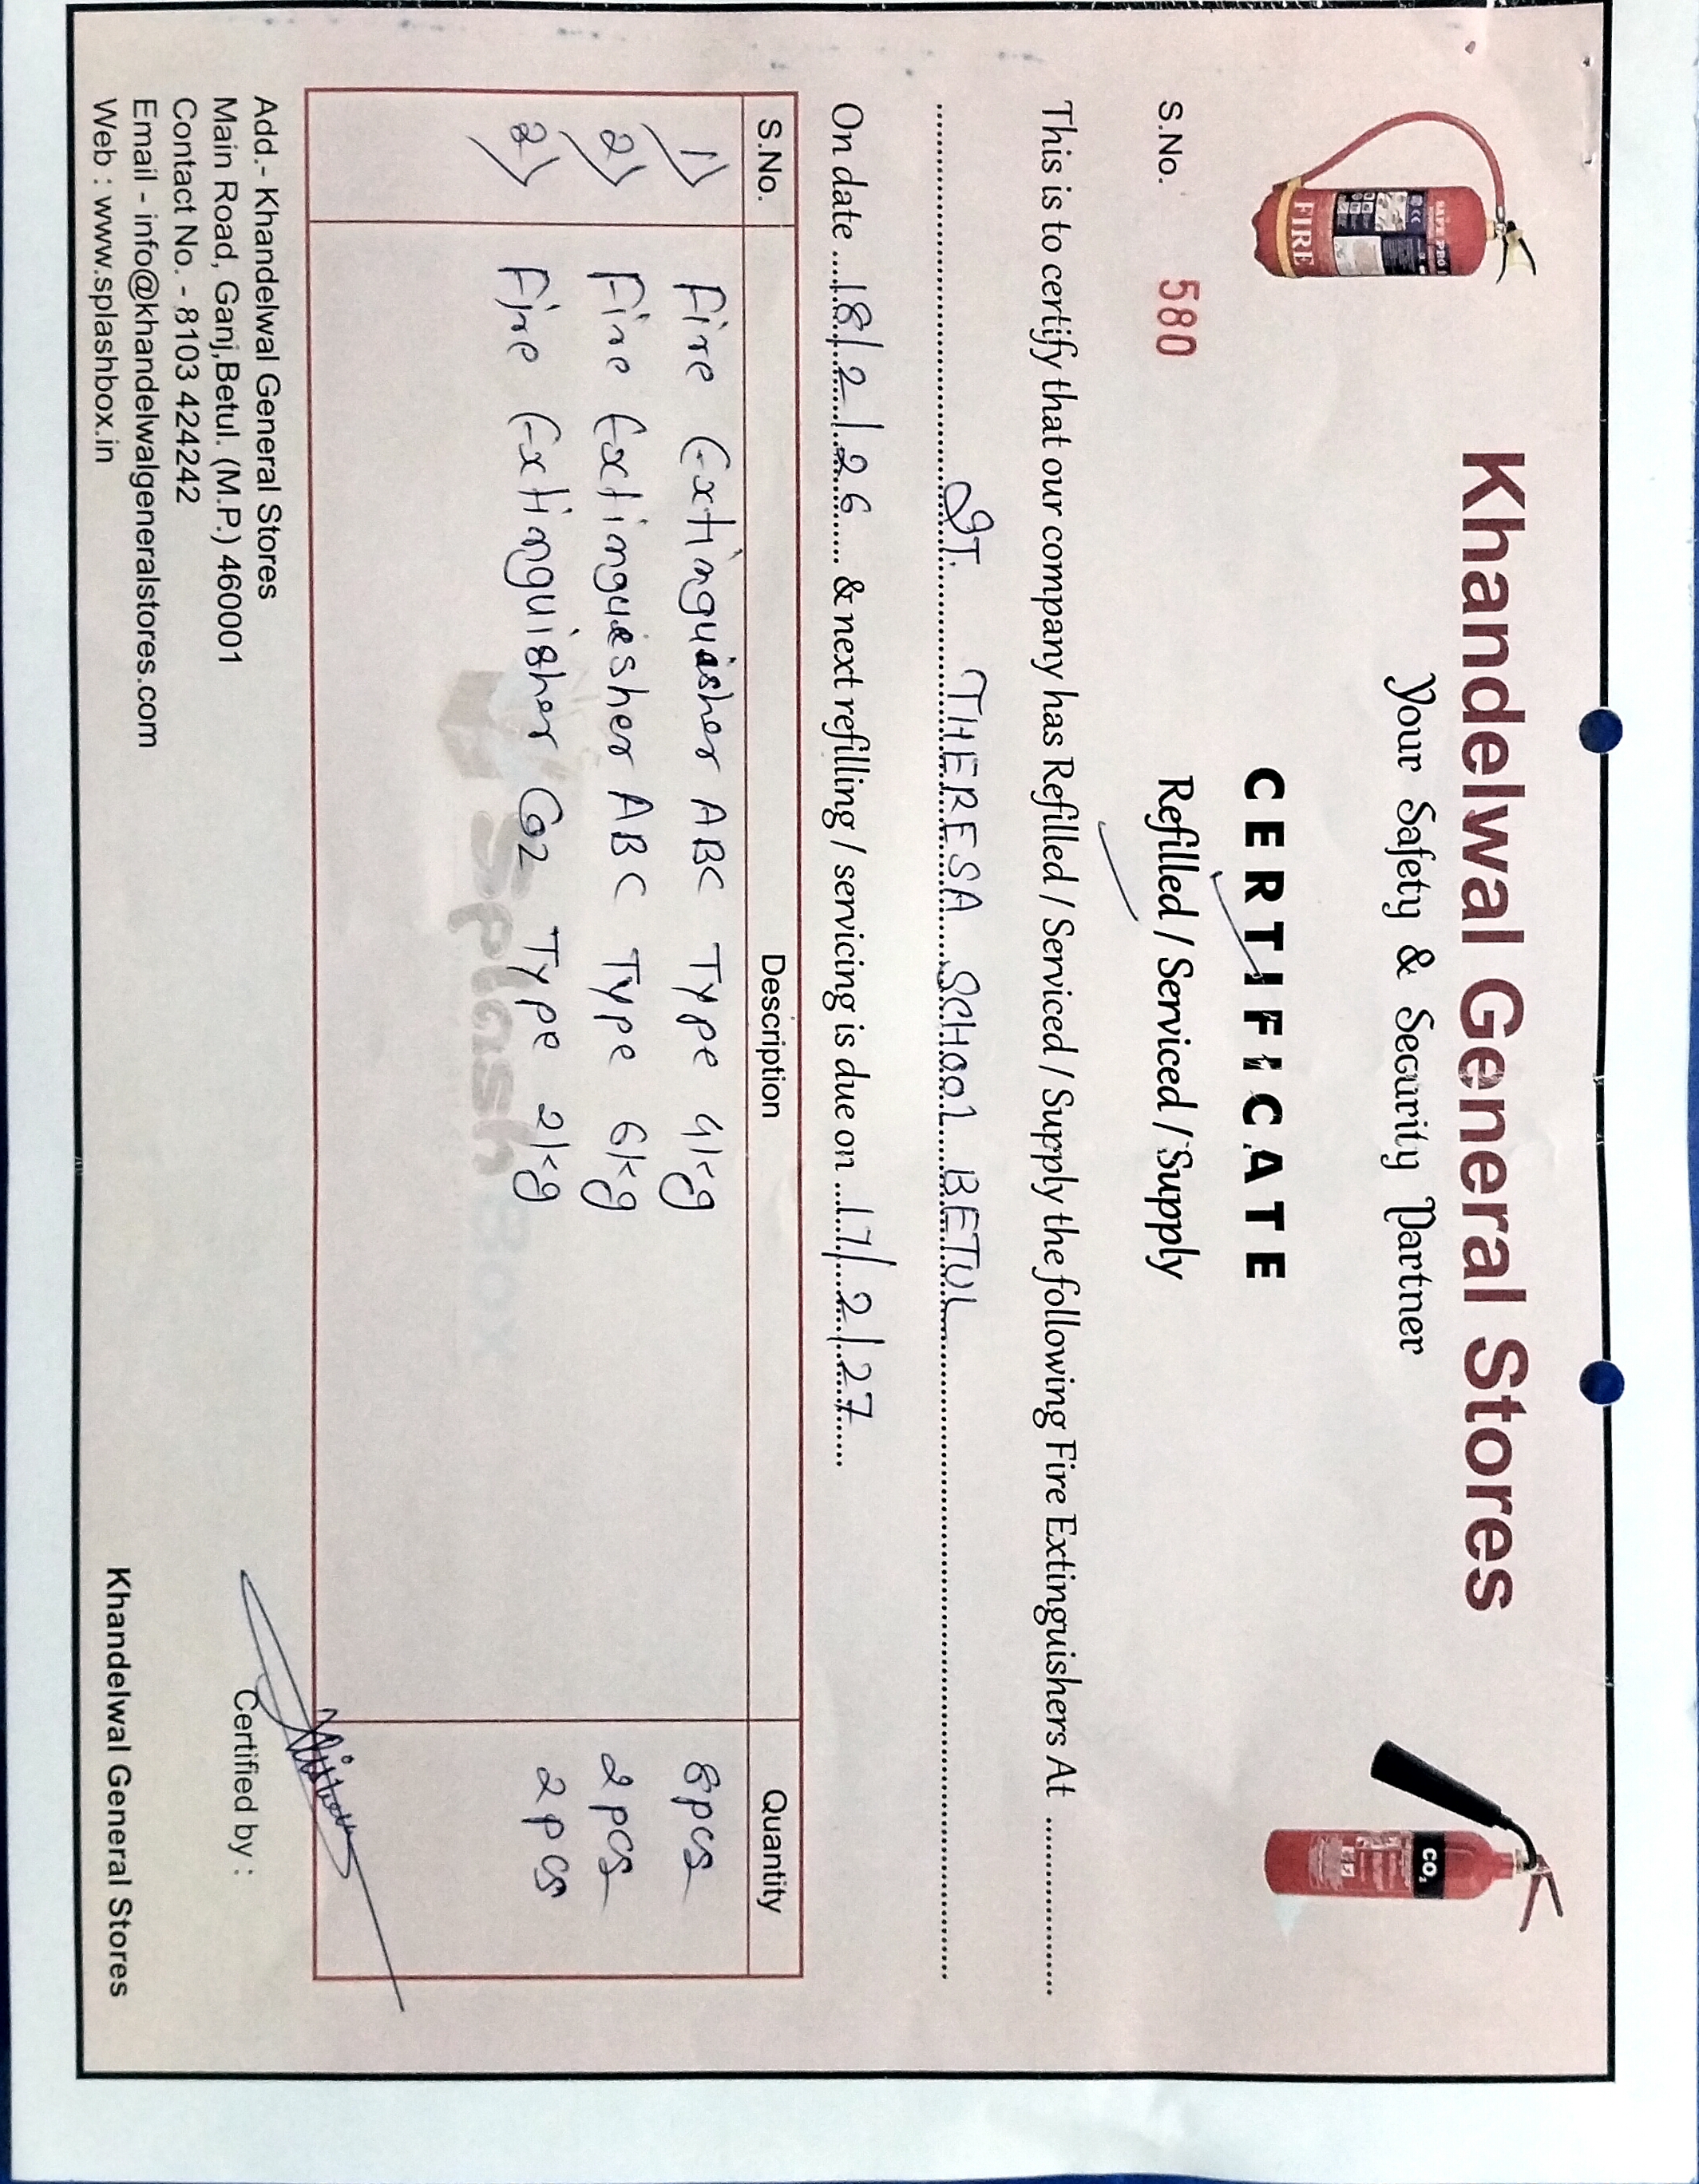 Khandelwal General Stores
Your Safety & Security Partner
CERTIFICATE
S.No. 580 Refilled / Serviced / Supply
This is to certify that our company has Refilled / Serviced / Supply the following Fire Extinguishers At ..............
ST. THERESA SCHOOL BETUL
On date 18/2/26 & next refilling / servicing is due on 17/2/27
S.No. Description Quantity
1) Fire Extinguisher ABC Type 4kg 8pcs
2) Fire Extinguesher ABC Type 6kg 2pcs
2) Fire Extinguisher Co2 Type 2kg 2pcs
Splash Box
Add.- Khandelwal General Stores
Main Road, Ganj,Betul. (M.P.) 460001
Contact No. - 8103 424242
Email - info@khandelwalgeneralstores.com
Web : www.splashbox.in
Certified by :
Khandelwal General Stores
FIRE
CO₂